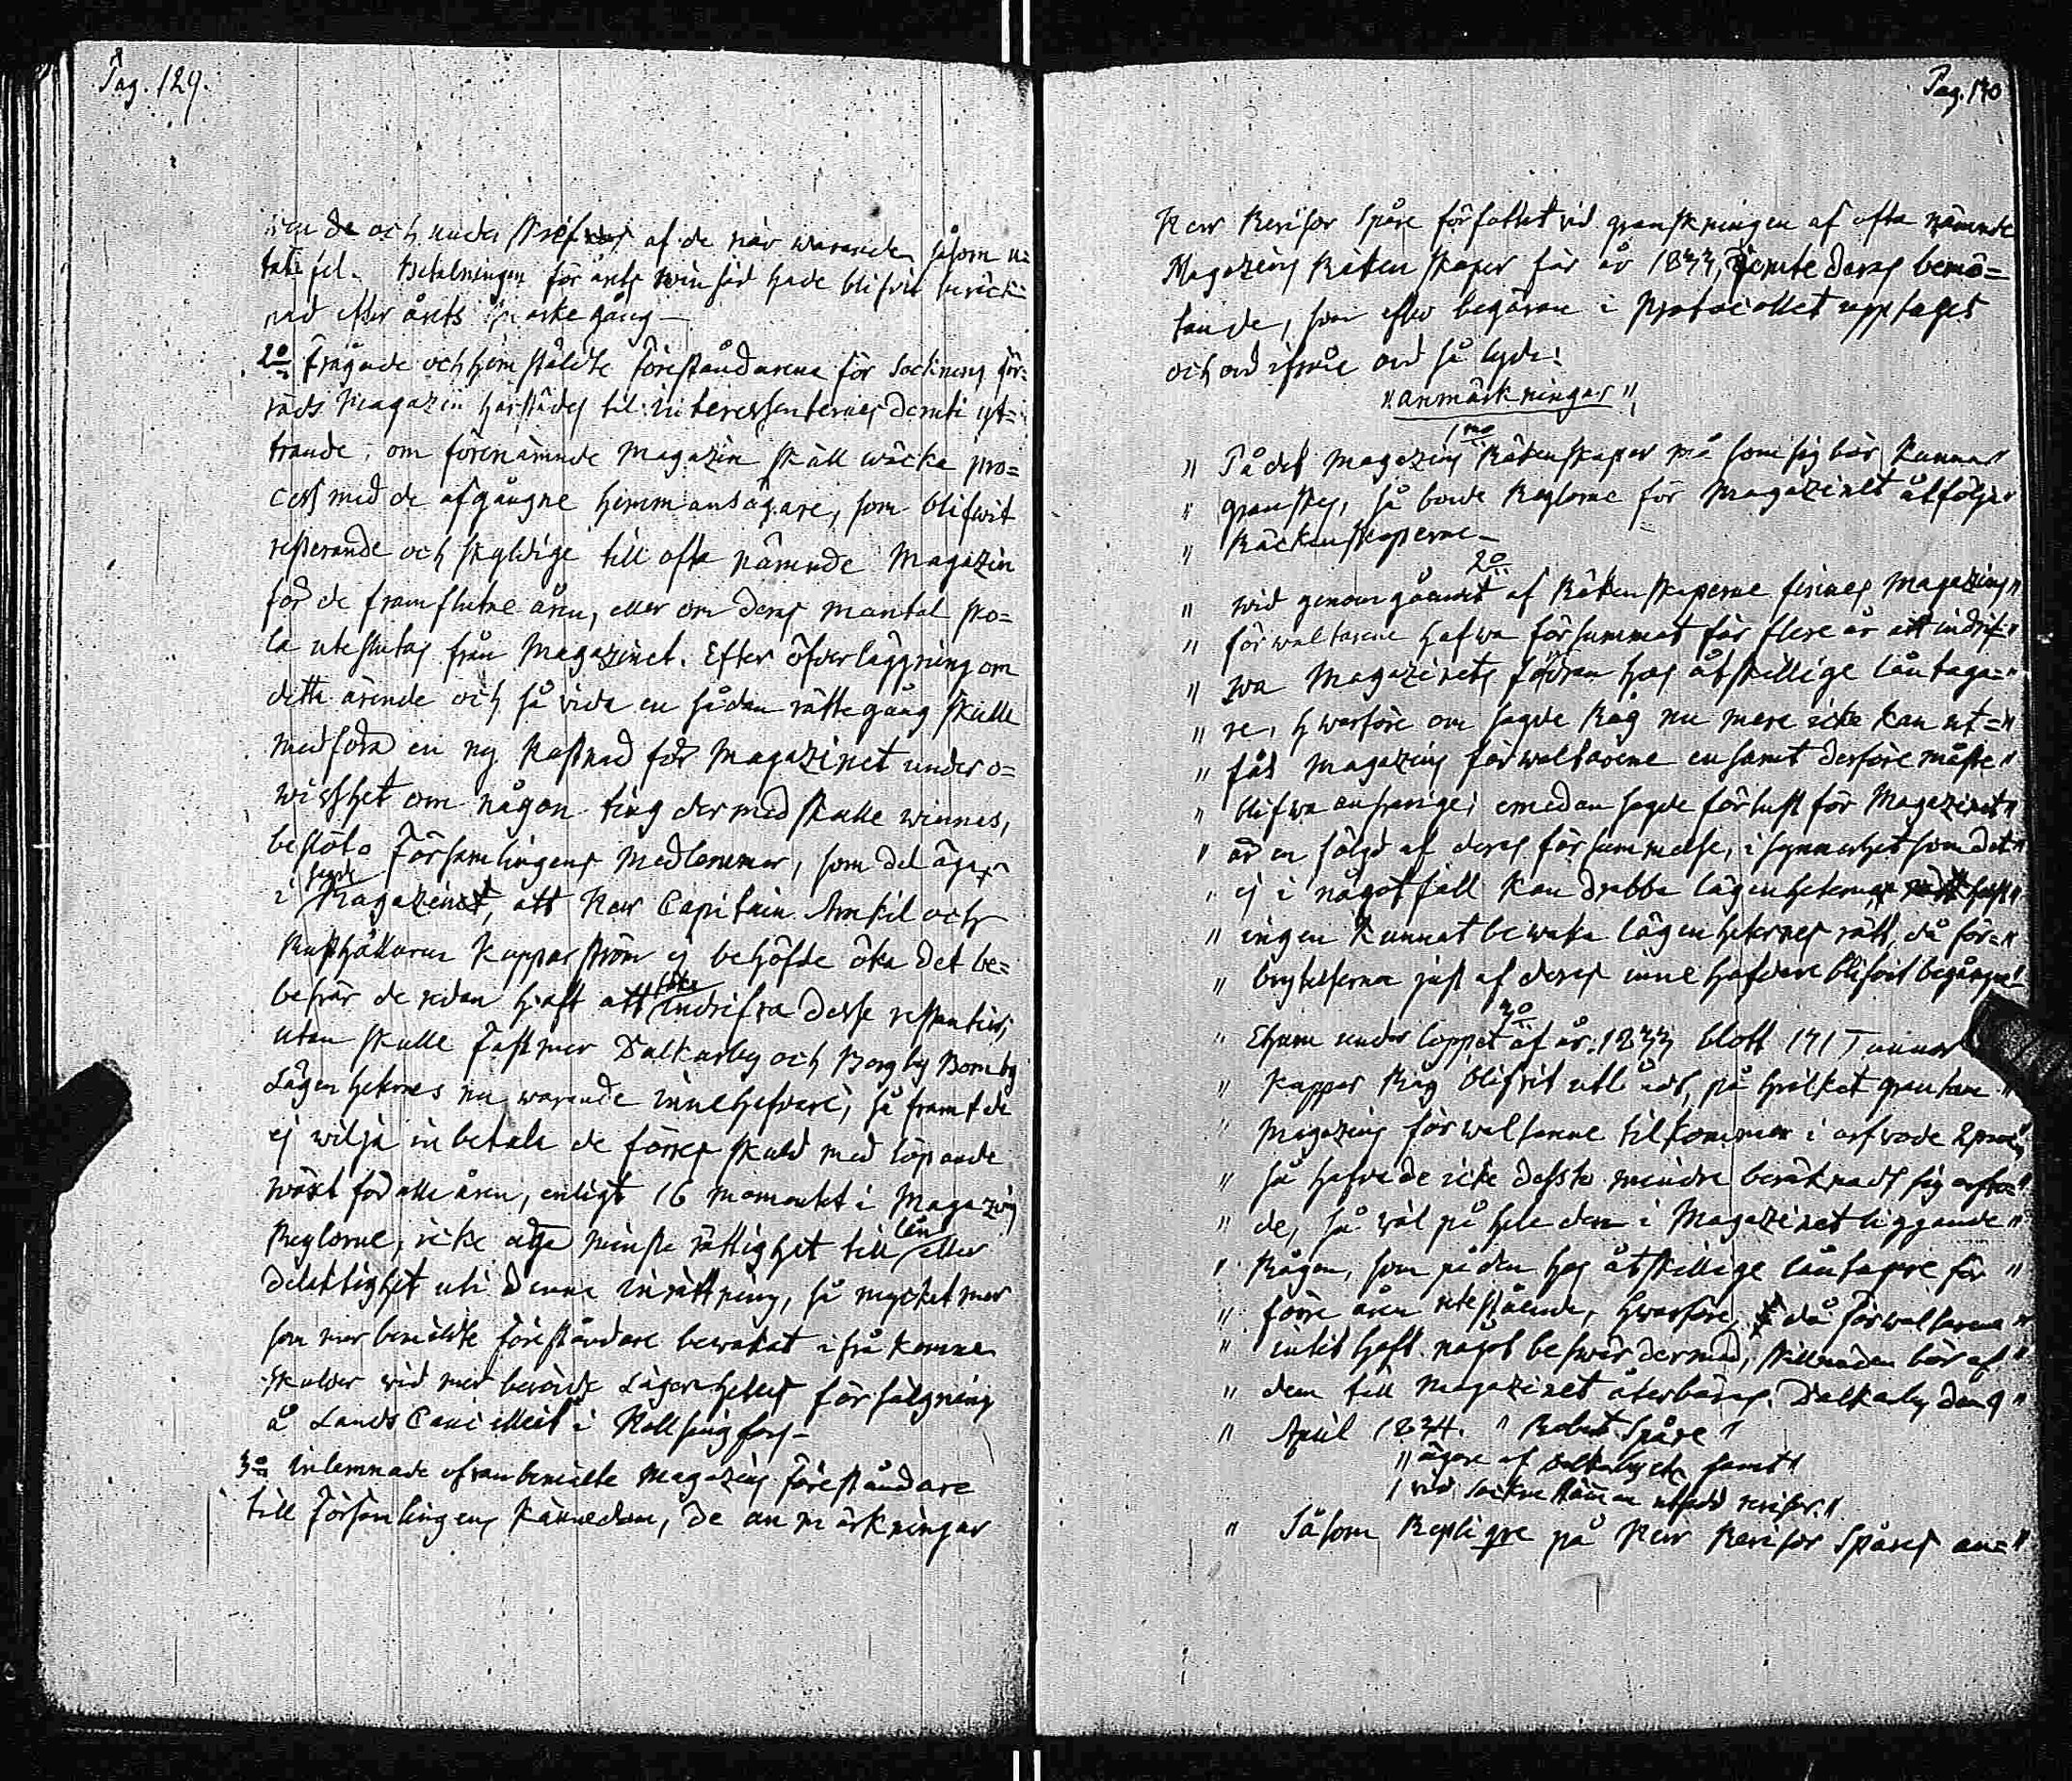 Pag. 129.
och underskrifwas af de när warande såsom
Betalningen för årets hade blifvit beräck-
nad efter årets markegång –
2o Frågade och hemstälde Föreståndarena för Socknens För-
råds Magazin härstädes til interessenternes deruti yt-
trande, om förenämnde Magazin skall wäcka pro=
cess med de afgångne hemmansägare, som blifwit
resterande och skyldige till ofta nämnde Magazin
för de framflutne åren, eller om deras mantal sko=
la uteslutas från Magazinet. Efter öfverläggning om
detta ärende och så vida en sådan rättegång skulle
medföra en ny kostnad för Magazinet under o=
wisshet om någon ting dermed skulle winnas,
beslöto Församlingens Medlemmar, som del äga
i sagde Magazinet, att Herr Capitain Amkil och
Rusthållaren Kopparström ej behöfde öka det be=
svär de redan haft att söka indrifva desse restantier,
utan skulle Fastmer Dalkarby och Borgby Bomby
Lägenheternes nu warande innehafvare, så framt de
ej wilja inbetala de förres skuld med löpande
wäxt för alla åren, enligt 16 momentet i Magazins
Reglorne, icke äga minsta rättighet till lån eller
delaktighet uti denna inrättning, så mycket mer
som merbemälte föreståndare bewakat ifrå komne
skulder wid mer berörde Lägenheters försäljning
å Lands Cancelliet i Hellsingfors –
3o inlemnade ofvanbemälte Magazins Föreståndare
till Församlingens kännedom, de anmärkningar
Pag. 130
Herr Revisor Spåre författat vid granskningen af ofta nämnde
Magazins Räkenskaper för år 1833, jemte deras bemö=
tande, som efter begäran i Protocollet upptages
och ord ifrån ord så lyda:
"anmärkningar"
1mo
" På det Magazins Räkenskaper må som sig bör kunna "
" granskas, så borde Reglorne för Magazinet åtfölja "
" Räckenskaperne –
2o
" wid genomgåendet af Räkenskaperne finnes Magazins "
" förwaltarene hafwa försummat för flere år att indrif= "
" wa Magazinets fodran hos åtskillige låntaga= "
" re, hwarföre om sagde Råg nu mera icke kan ut= "
" fås Magazins förwaltarene ensamt derföre måste "
" blifwa answarige, emedan sagde förlust för Magazinet "
" är en följd af deras försummelse, i synnerhet som det "
" ej i något fall kan drabba lägenheterna
" ingen kunnat bewaka lägenheternes rätt, då för= "
" brytelserna just af deras innehafvare blifvit begångne!
3o
" Ehuru under loppet af år 1833 blott 171 Tunnor
" Kappar Råg blifvit utlånt, på hvilket quantum "
" Magazins förwaltarne tilkommer i arfvode 2
" så hafva de icke dessto mindre beräknadt sig arfvo= "
" de, så wäl på hela den i Magazinet liggande "
" Rågen, som på den hos åtskillige låntagare för "
" förre åren utestående, hwarföre, då förwaltarena "
" intet haft något beswär dermed, skillnaden bör af "
" dem till Magazinet återbäras. Dalkarby den 9 "
" April 1834. " Robert Spåre "
" ägare af Dalkarby samt "
" vid sockne stämman utsedd revisor. "
" Såsom Replique på Herr Revisor Spåres an= "